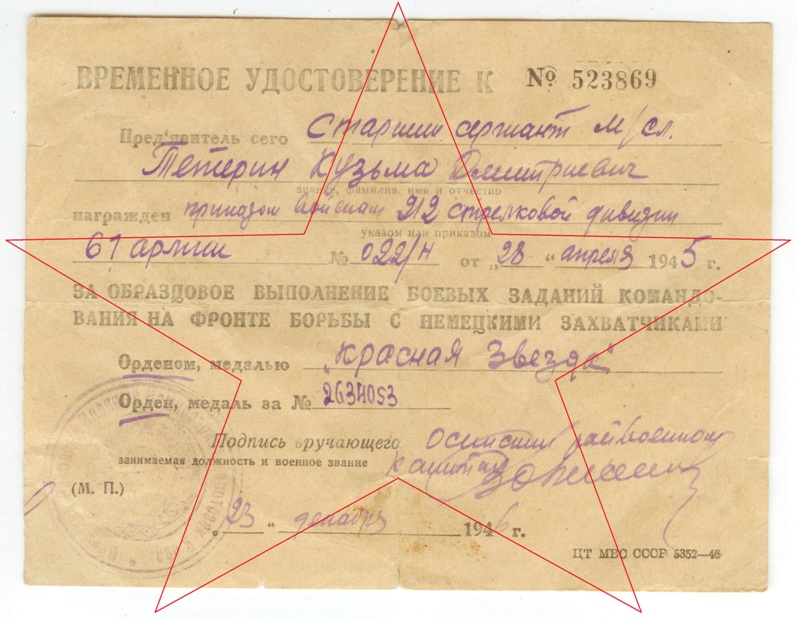 ВРЕМЕННОЕ УДОСТОВЕРЕНИЕ К № 523869
Пред'явитель сего Старший сержант м/сл.
Тетерин Кузьма Дмитриевич
звание, фамилия, имя и отчество
награжден приказом войскам 212 стрелковой дивизии
указом или приказом
61 армии № 022/н от „28" апреля 1945 г.
ЗА ОБРАЗЦОВОЕ ВЫПОЛНЕНИЕ БОЕВЫХ ЗАДАНИЙ КОМАНДО-
ВАНИЯ НА ФРОНТЕ БОРЬБЫ С НЕМЕЦКИМИ ЗАХВАТЧИКАМИ
Орденом, медалью „Красная Звезда"
Орден, медаль за № 2634053
Подпись вручающего райвоенком
занимаемая должность и военное звание капитан
(М. П.)
„23" декабря 1946 г.
ЦТ МВС СССР 5352—46